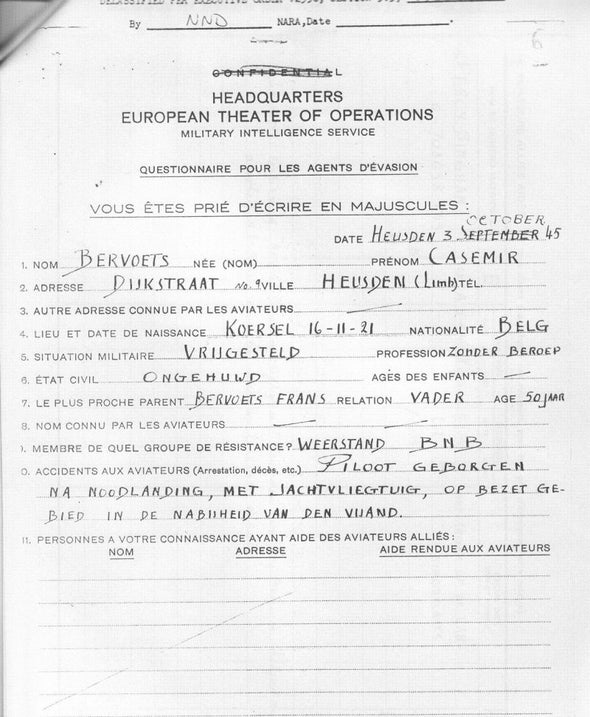 DECLASSIFIED PER EXECUTIVE ORDER
By NND NARA, Date
6
CONFIDENTIAL
HEADQUARTERS
EUROPEAN THEATER OF OPERATIONS
MILITARY INTELLIGENCE SERVICE
QUESTIONNAIRE POUR LES AGENTS D'ÉVASION
VOUS ÊTES PRIÉ D'ÉCRIRE EN MAJUSCULES :
OCTOBER
DATE HEUSDEN 3 SEPTEMBER 45
1. NOM BERVOETS NÉE (NOM) PRÉNOM CASEMIR
2. ADRESSE DIJKSTRAAT No. 9 VILLE HEUSDEN (Limb) TÉL.
3. AUTRE ADRESSE CONNUE PAR LES AVIATEURS
4. LIEU ET DATE DE NAISSANCE KOERSEL 16-11-21 NATIONALITÉ BELG
5. SITUATION MILITAIRE VRIJGESTELD PROFESSION ZONDER BEROEP
6. ÉTAT CIVIL ONGEHUWD AGES DES ENFANTS
7. LE PLUS PROCHE PARENT BERVOETS FRANS RELATION VADER AGE 50 JAAR
8. NOM CONNU PAR LES AVIATEURS
). MEMBRE DE QUEL GROUPE DE RÉSISTANCE? WEERSTAND BNB
0. ACCIDENTS AUX AVIATEURS (Arrestation, décès, etc.) PILOOT GEBORGEN
NA NOODLANDING, MET JACHTVLIEGTUIG, OP BEZET GE-
BIED IN DE NABIJHEID VAN DEN VIJAND.
11. PERSONNES A VOTRE CONNAISSANCE AYANT AIDE DES AVIATEURS ALLIÉS :
NOM ADRESSE AIDE RENDUE AUX AVIATEURS